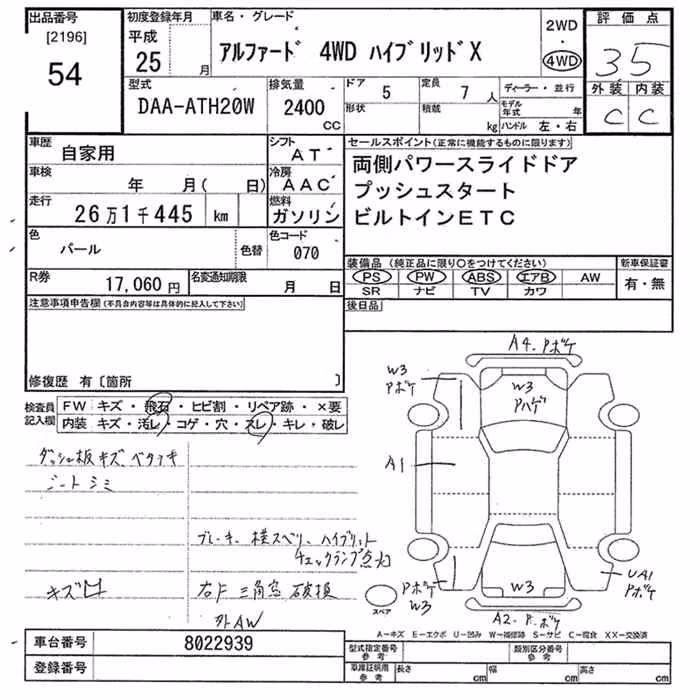 出品番号
[2196]
54
初度登録年月
平成
25 月
車名・グレード
アルファード 4WD ハイブリッドX
2WD
4WD
評価点
35
外装 内装
C C
型式
DAA-ATH20W
排気量
2400
CC
ドア 5
形状
定員 7 人
積載 kg
ディーラー・並行
モデル年式 年
ハンドル 左・右
車歴
自家用
シフト
AT
車検
年 月( 日)
冷房
AAC
走行
26万1千445 km
燃料
ガソリン
色
パール
色替
色コード
070
R券
17,060 円
名変通知期限
月 日
セールスポイント(正常に機能するものに限ります)
両側パワースライドドア
プッシュスタート
ビルトインETC
装備品(純正品に限り○をつけてください)
PS PW ABS エアB AW
SR ナビ TV カワ
新車保証書
有・無
後日品
注意事項申告欄(不具合内容等は具体的に記入して下さい)
修復歴 有〔箇所 〕
検査員
記入欄
FW キズ・飛石・ヒビ割・リペア跡・×要
内装 キズ・汚レ・コゲ・穴・スレ・キレ・破レ
ダッシュ板キズ ベタツキ
シートシミ
ブレーキ、横スベリ、ハイブリット
チェックランプ点灯
キズ
右F 三角窓 破損
外AW
A4. Pボケ
W3
Pボケ
W3
Pハゲ
A1
Pボケ
W3
W3
UA1
Pボケ
A2. P.ボケ
スペア
A-キズ E-エクボ U-凹み W-補修跡 S-サビ C-腐食 XX-交換済
車台番号 8022939
登録番号
型式指定番号
参考
類別区分番号
参考
車庫証明用
参考
長さ cm 幅 cm 高さ cm